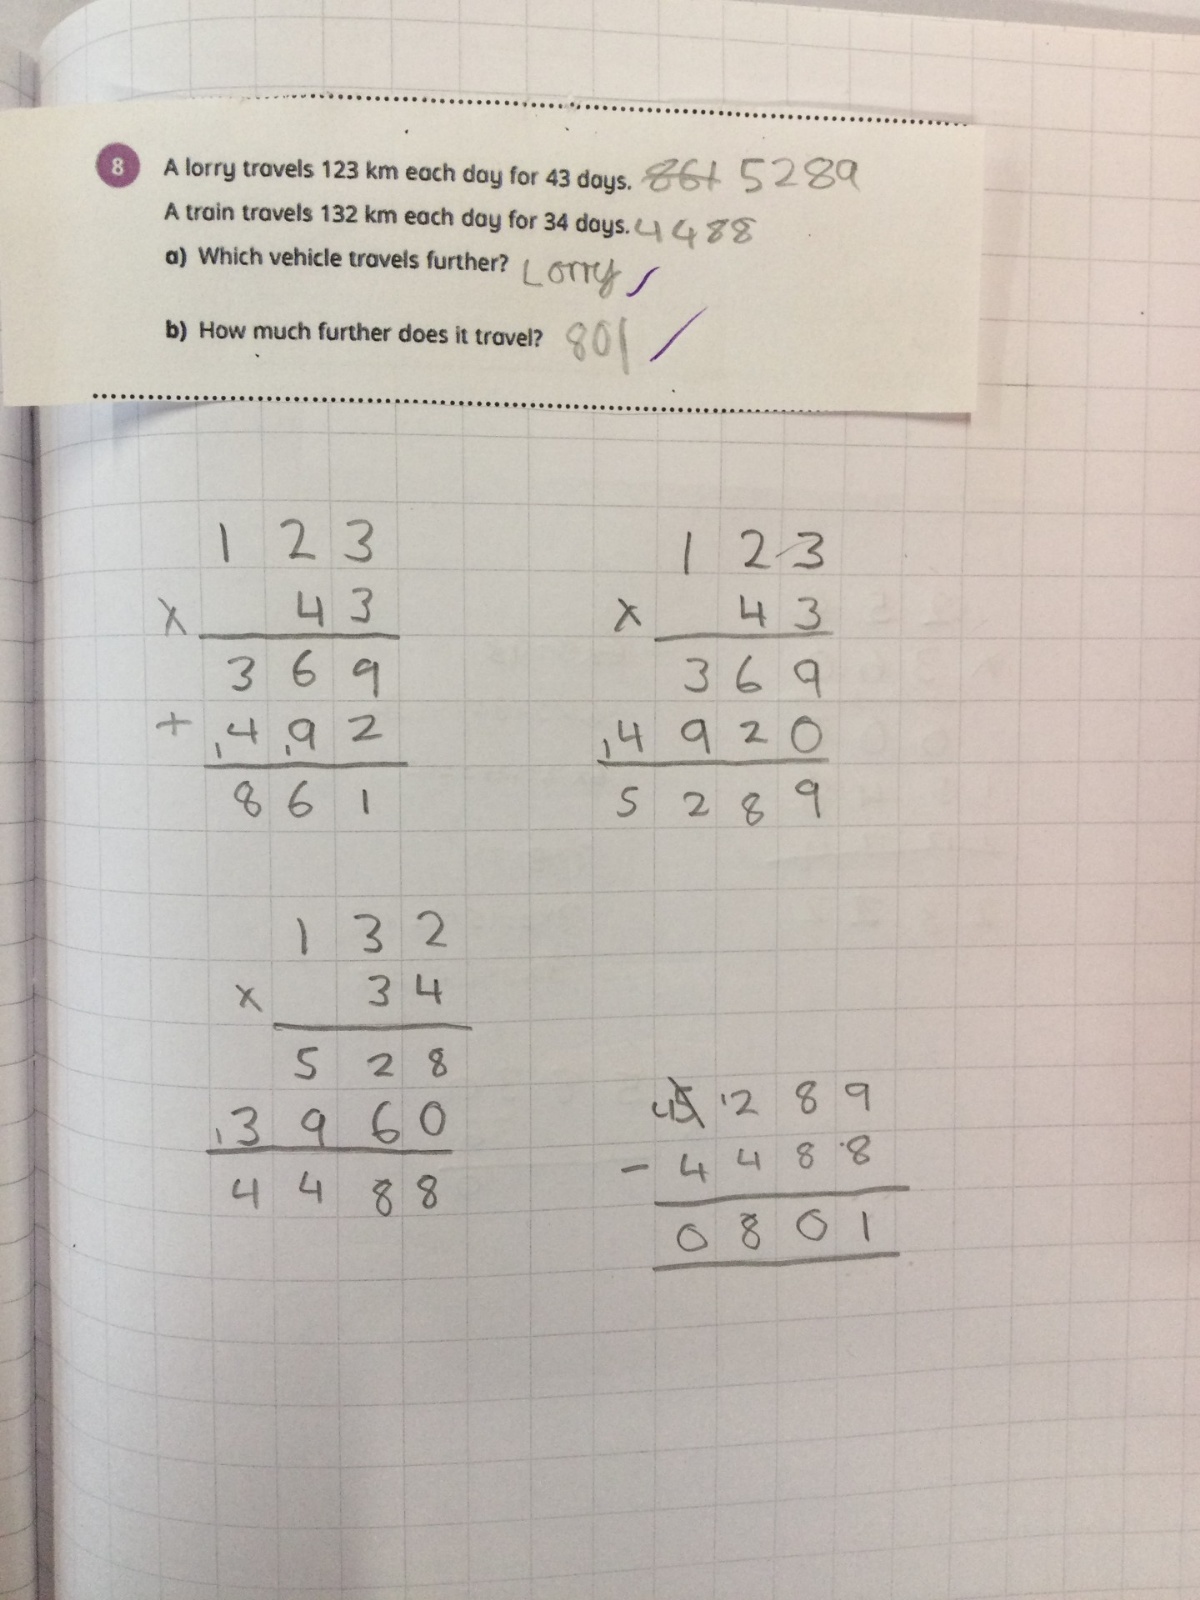 8 A lorry travels 123 km each day for 43 days. 861 5289
A train travels 132 km each day for 34 days. 4488
a) Which vehicle travels further? Lorry
b) How much further does it travel? 801
1 2 3
x 4 3
3 6 9
+ 1 4 1 9 2
8 6 1
1 2 3
x 4 3
3 6 9
1 4 9 2 0
5 2 8 9
1 3 2
x 3 4
5 2 8
1 3 9 6 0
4 4 8 8
4 5 1 2 8 9
- 4 4 8 8
0 8 0 1